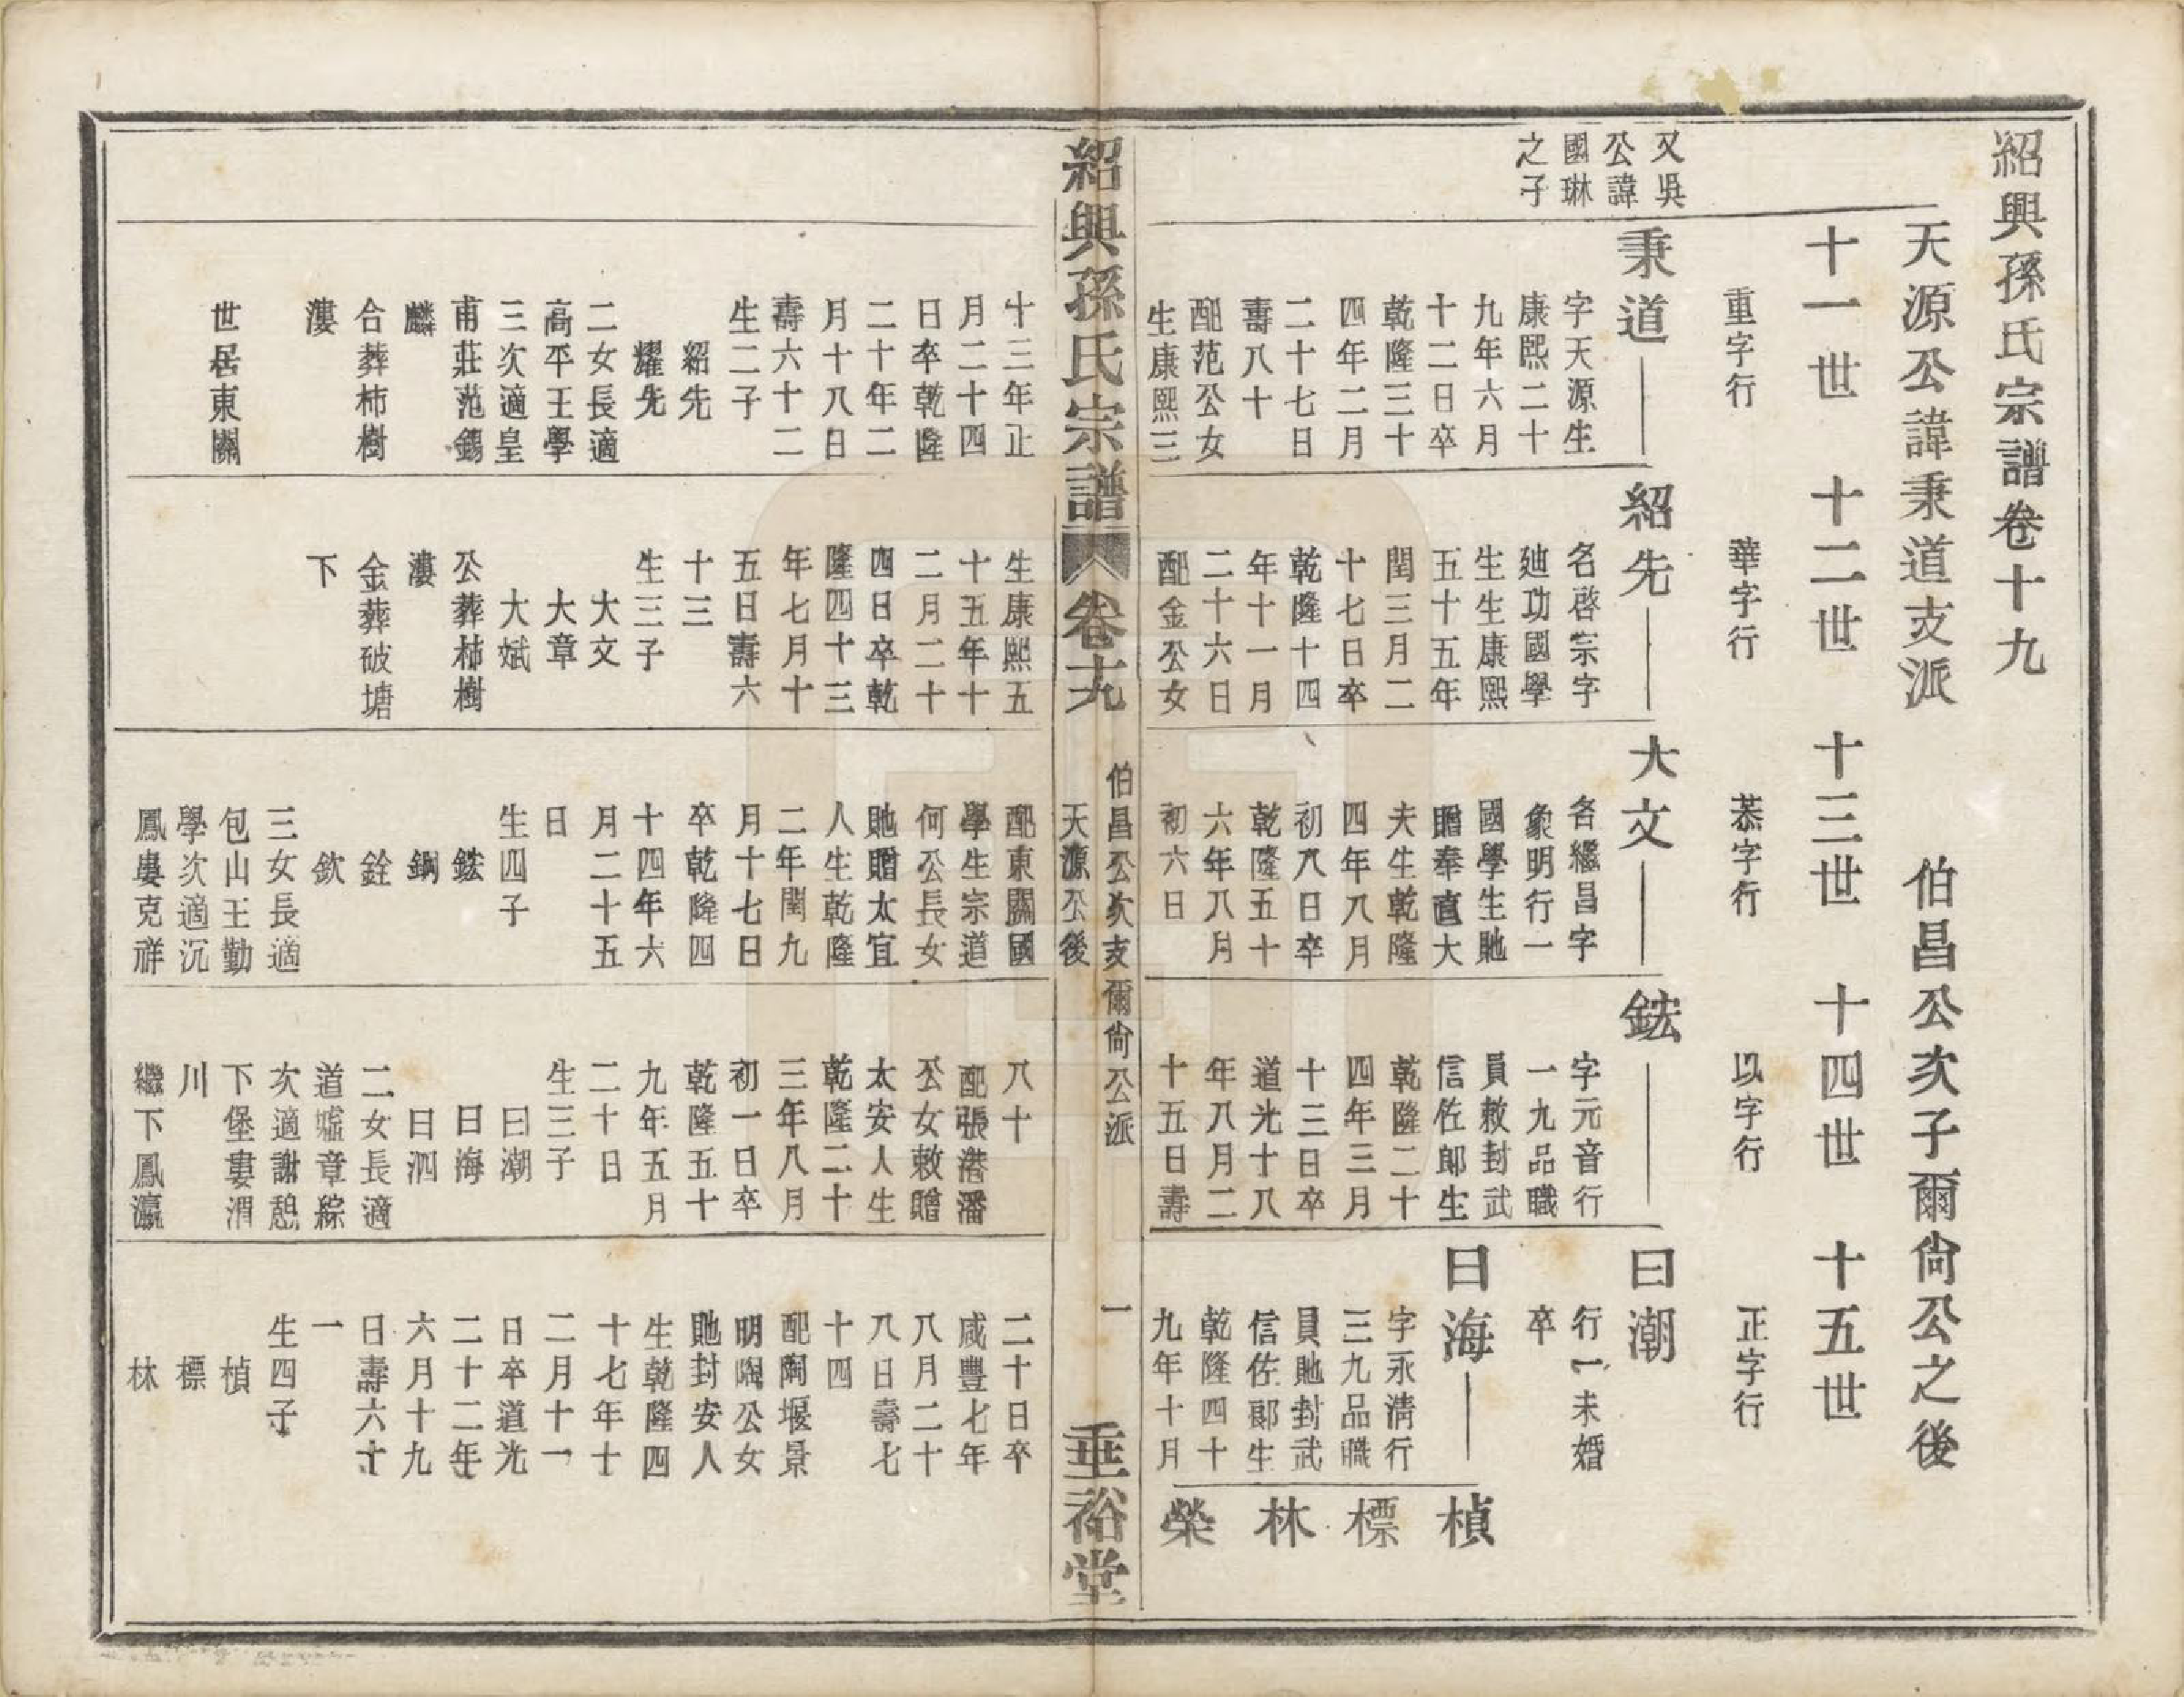 紹興孫氏宗譜卷十九
天源公諱秉道支派　伯昌公次子爾尙公之後
十一世　十二世　十三世　十四世　十五世
重字行　華字行　恭字行　以字行　正字行
又吳
公諱
國琳
之子
秉道
字天源生
康熙二十
九年六月
十二日卒
乾隆三十
四年二月
二十七日
壽八十
配范公女
生康熙三
十三年正
月二十四
日卒乾隆
二十年二
月十八日
壽六十二
生二子
紹先
耀先
二女長適
高平王學
三次適皇
甫莊范錫
麟
合葬柿樹
漊
世居東關
紹先
名啓宗字
廸功國學
生生康熙
五十五年
閏三月二
十七日卒
乾隆十四
年十一月
二十六日
配金公女
生康熙五
十五年十
二月二十
四日卒乾
隆四十三
年七月十
五日壽六
十三
生三子
大文
大章
大斌
公葬柿樹
漊
金葬破塘
下
大文
名繼昌字
象明行一
國學生貤
贈奉直大
夫生乾隆
四年八月
初八日卒
乾隆五十
六年八月
初六日
配東關國
學生宗道
何公長女
貤贈太宜
人生乾隆
二年閏九
月十七日
卒乾隆四
十四年六
月二十五
日
生四子
鋐
鋼
銓
欽
三女長適
包山王勤
學次適沉
鳳婁克祥
鋐
字元音行
一九品職
員敕封武
信佐郎生
乾隆二十
四年三月
十三日卒
道光十八
年八月二
十五日壽
八十
配張漊潘
公女敕贈
太安人生
乾隆二十
三年八月
初一日卒
乾隆五十
九年五月
二十日
生三子
曰潮
曰海
曰泗
二女長適
道墟章綜
次適謝憩
下堡婁渭
川
繼下鳳瀛
曰潮
行一未婚
卒
曰海
字永淸行
三九品職
員貤封武
信佐郎生
乾隆四十
九年十月
二十日卒
咸豐七年
八月二十
八日壽七
十四
配陶堰景
明陶公女
貤封安人
生乾隆四
十七年十
二月十一
日卒道光
二十二年
六月十九
日壽六十
一
生四子
楨
標
林
楨　標　林　榮
紹興孫氏宗譜　卷十九　伯昌公次支爾尙公派　天源公後　一　垂裕堂